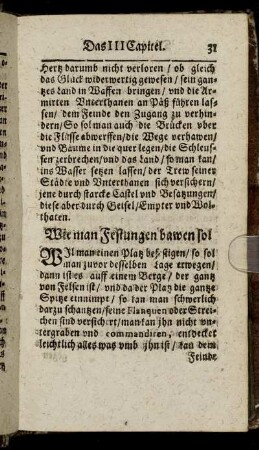 Das III Capitel. 31
Hertz darumb nicht verloren / ob gleich
das Glück widerwertig gewesen / sein gan-
tzes Land in Waffen bringen / vnd die Ar-
mirten Vnterthanen an Päß führen las-
sen / dem Feinde den Zugang zu verhin-
dern / So sol man auch die Brücken vber
die Flüsse abwerffen / die Wege verhawen /
vnd Bäume in die quer legen / die Schleus-
sen zerbrechen / vnd das Land / so man kan /
ins Wasser setzen lassen / der Trew seiner
Städte vnd Vnterthanen sich versichern /
jene durch starcke Castel vnd Besatzungen /
diese aber durch Geisel / Empter vnd Wol-
thaten.
Wie man Festungen bawen sol
WIl man einen Platz befestigen / so sol
man zuvor desselben Lage erwegen /
dann ist es auff einem Berge / der gantz
von Felsen ist / vnd da der Platz die gantze
Spitze einnimpt / so kan man schwerlich
darzu schantzen / seine Flanquen oder Strei-
chen sind versichert / man kan jhn nicht vn-
tergraben vnd commandiren, entdecket
leichtlich alles was vmb jhn ist / kan dem
Feinde